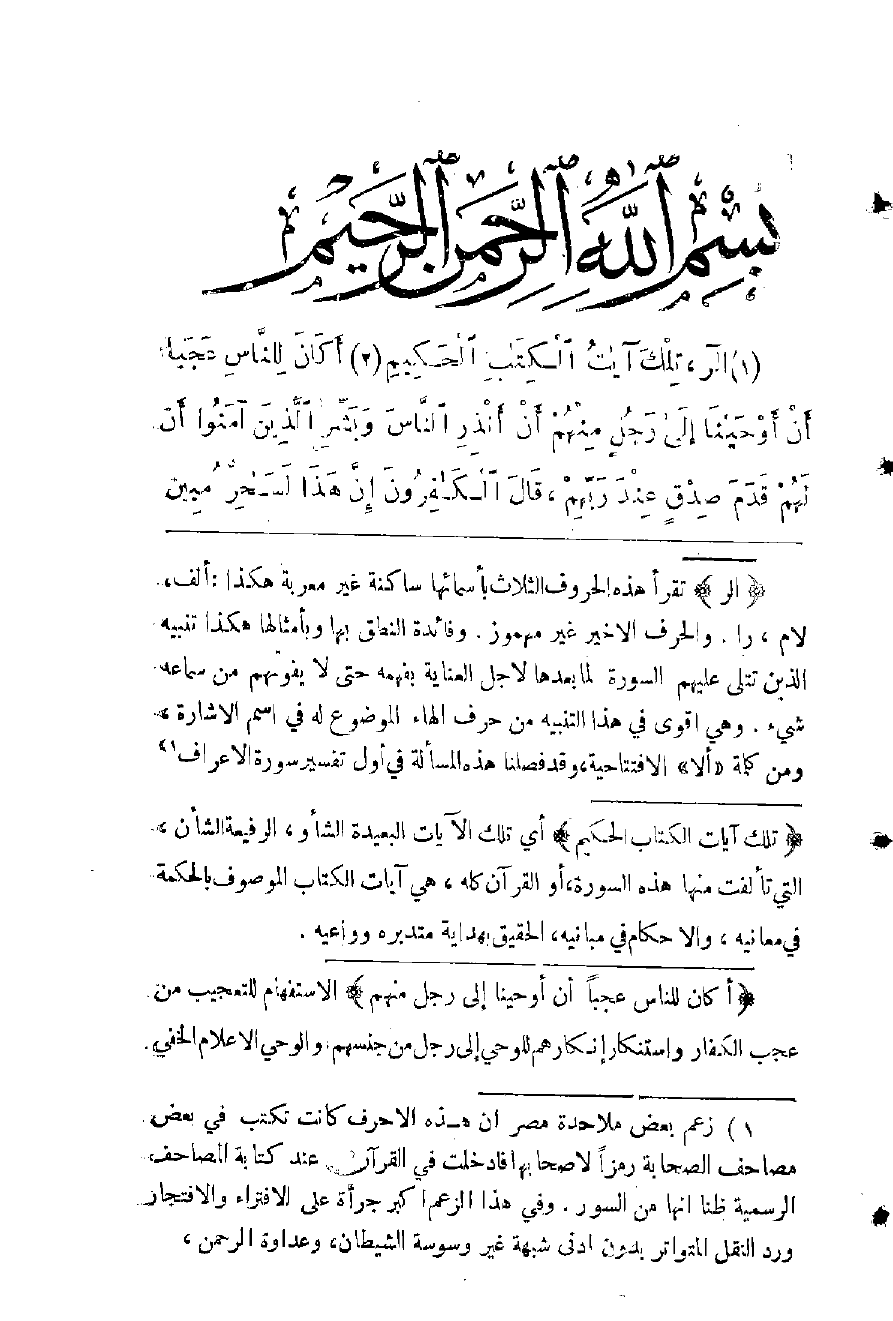 بِسْمِ ٱللَّهِ ٱلرَّحْمَنِ ٱلرَّحِيمِ
(١) الٓر ، تِلْكَ آيَاتُ ٱلْكِتَٰبِ ٱلْحَكِيمِ (٢) أَكَانَ لِلنَّاسِ عَجَبًا
أَنْ أَوْحَيْنَا إِلَىٰ رَجُلٍ مِنْهُمْ أَنْ أَنْذِرِ ٱلنَّاسَ وَبَشِّرِ ٱلَّذِينَ آمَنُوا أَنَّ
لَهُمْ قَدَمَ صِدْقٍ عِنْدَ رَبِّهِمْ ، قَالَ ٱلْكَٰفِرُونَ إِنَّ هَذَا لَسَٰحِرٌ مُبِين
﴿ الر ﴾ تقرأ هذه الحروف الثلاث بأسمائها ساكنة غير معربة هكذا : ألف،
لام ، را . والحرف الاخير غير مهموز . وفائدة النطق بها وبأمثالها هكذا تنبيه
الذين تتلى عليهم السورة لما بعدها لاجل العناية بفهمه حتى لا يفوتهم من سماعه
شيء . وهي اقوى في هذا التنبيه من حرف الهاء الموضوع له في اسم الاشارة ،
ومن كلمة «ألا» الافتتاحية، وقد فصلنا هذه المسألة في أول تفسير سورة الاعراف١)
﴿ تلك آيات الكتاب الحكيم ﴾ أي تلك الآيات البعيدة الشأو ، الرفيعة الشأن ،
التي تألفت منها هذه السورة، أو القرآن كله ، هي آيات الكتاب الموصوف بالحكمة
في معانيه ، والاحكام في مبانيه، الحقيق بهداية متدبره وواعيه .
﴿ أكان للناس عجباً أن أوحينا إلى رجل منهم ﴾ الاستفهام للتعجيب من
عجب الكفار واستنكار إنكارهم للوحي إلى رجل من جنسهم، والوحي الاعلام الخفي
١) زعم بعض ملاحدة مصر ان هذه الاحرف كانت تكتب في بعض
مصاحف الصحابة رمزاً لاصحابها فادخلت في القرآن عند كتابة المصاحف
الرسمية ظنا انها من السور . وفي هذا الزعم اكبر جرأة على الافتراء والافتجار
ورد النقل المتواتر بدون ادنى شبهة غير وسوسة الشيطان، وعداوة الرحمن ،